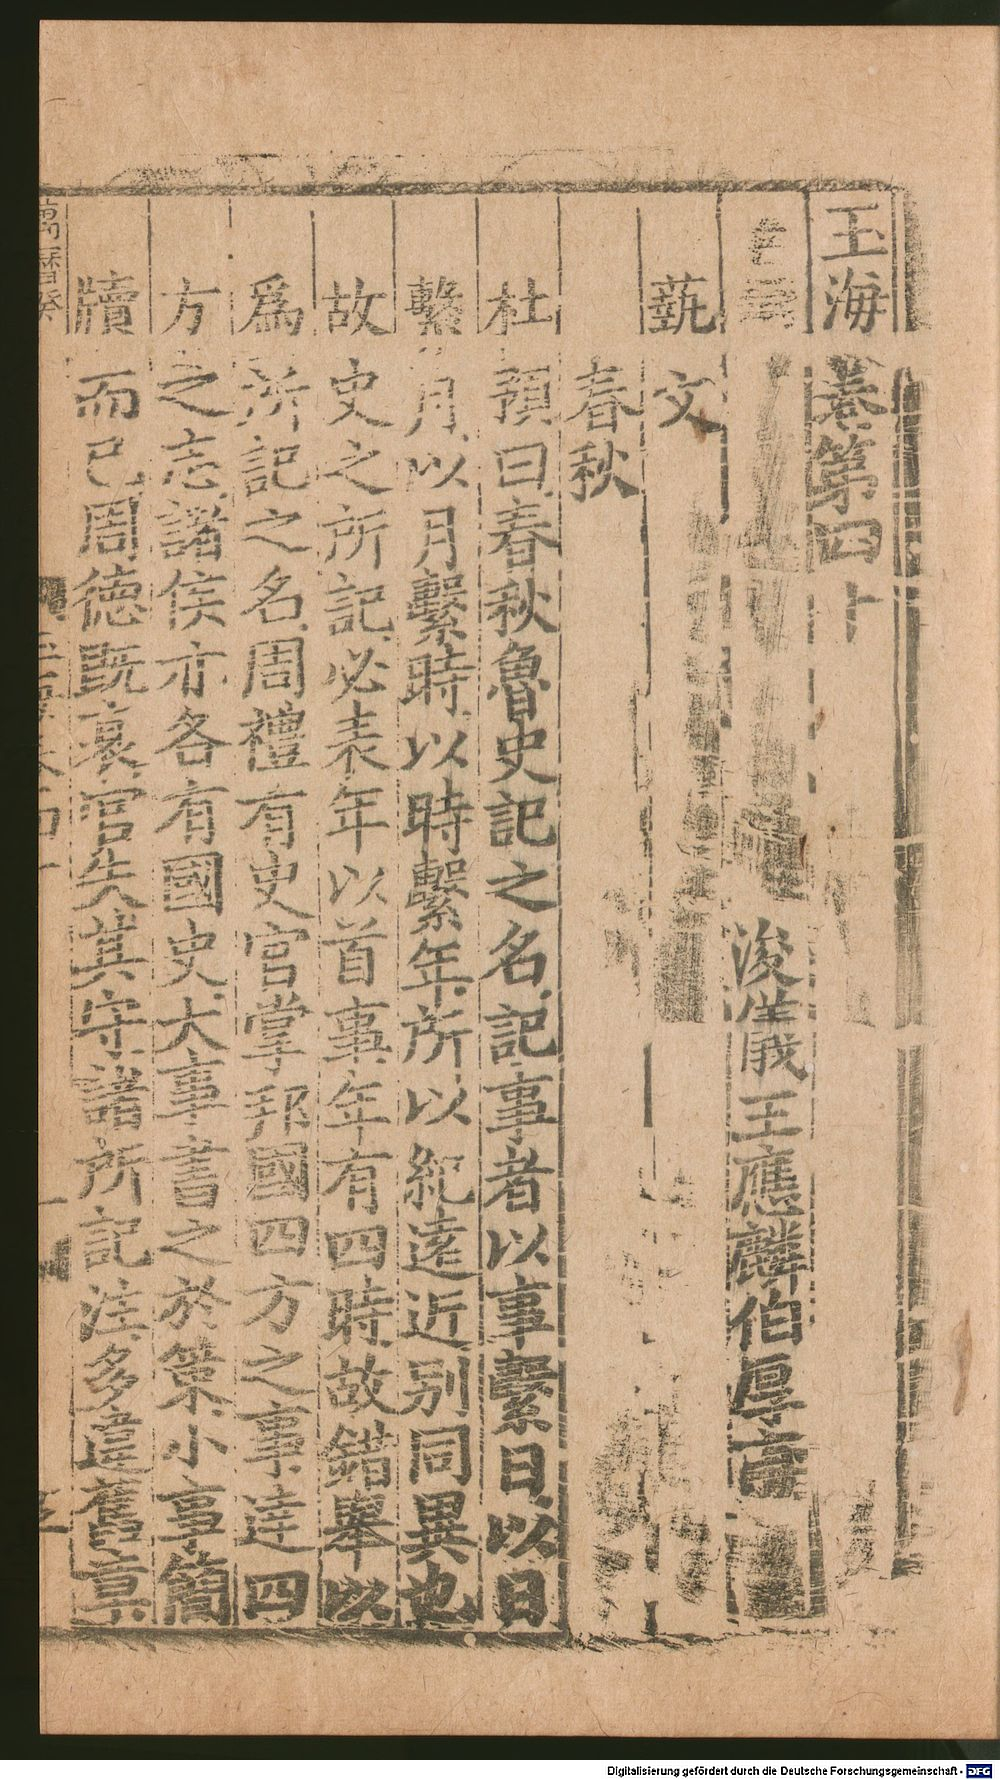 玉海卷第四十
浚儀王應麟伯厚甫
藝文
春秋
杜預曰春秋魯史記之名記事者以事繫日以日
繫月以月繫時以時繫年所以紀遠近别同異也
故史之所記必表年以首事年有四時故錯舉以
爲所記之名周禮有史官掌邦國四方之事達四
方之志諸侯亦各有國史大事書之於策小事簡
牘而已周德既衰官失其守諸所記注多違舊章
萬曆癸
Digitalisierung gefördert durch die Deutsche Forschungsgemeinschaft - DFG